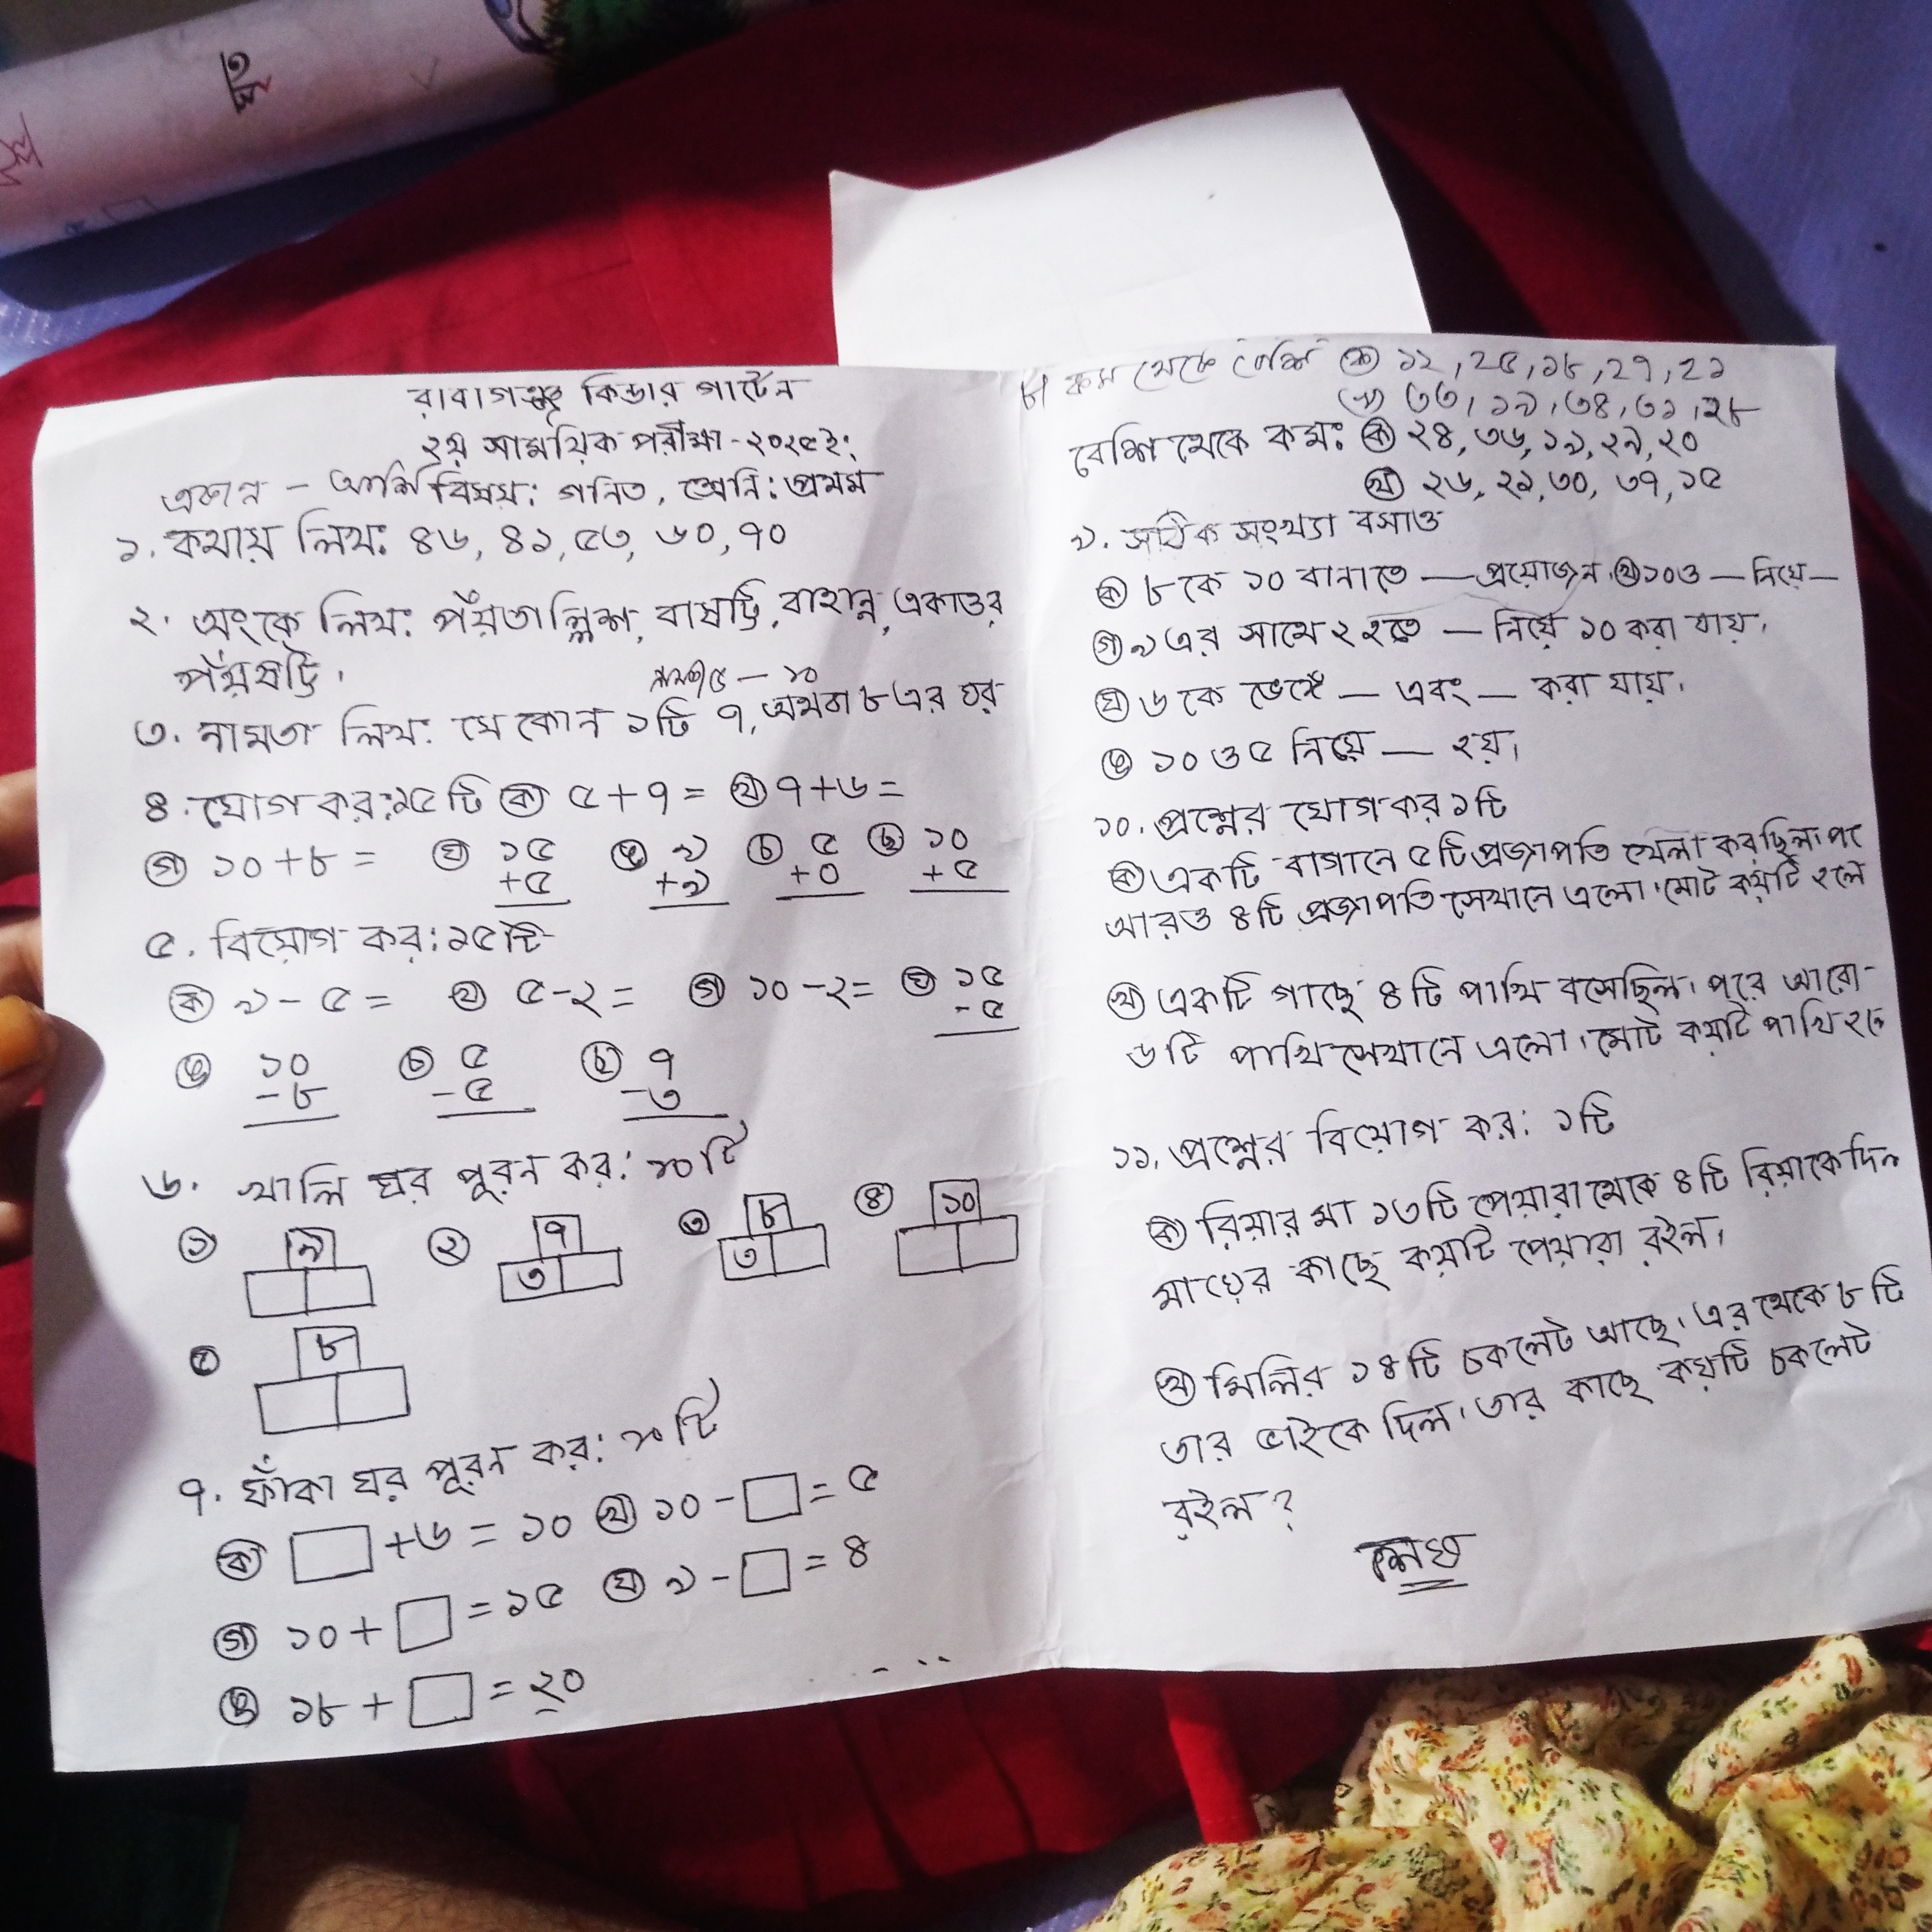 কিন্ডার গার্টেন
২য় সাময়িক পরীক্ষা - ২০২৫ ইং
বিষয়: গনিত, শ্রেনি: প্রথম
১. কথায় লিখ: ৪৬, ৪১, ৫৩, ৬০, ৭০
২. অংকে লিখ: পঁয়তাল্লিশ, বাষট্টি, বাহান্ন, একাত্তর
পঁয়ষট্টি।
৫ — ১০
৩. নামতা লিখ: যে কোন ১টি ৭, অথবা ৮ এর ঘর
৪. যোগ কর: ১৫টি ক ৫+৭= খ ৭+৬=
গ ১০+৮= ঘ ১৫ ঙ ৯ চ ৫ ছ ১০
+৫ +৯ +০ +৫
৫. বিয়োগ কর: ১৫টি
ক ৯-৫= খ ৫-২= গ ১০-২= ঘ ১৫
-৫
ঙ ১০ চ ৫ ছ ৭
-৮ -৫ -৩
৬. খালি ঘর পুরন কর: ১০টি
১ ৯ ২ ৭ ৩ ৮ ৪ ১০
৩ ৩
৫ ৮
৭. ফাঁকা ঘর পুরন কর: ১০টি
ক □+৬=১০ খ ১০-□=৫
গ ১০+□=১৫ ঘ ৯-□=৪
ঙ ১৮+□=২০
৮। কম থেকে বেশি ক ১২, ২৫, ১৮, ২৭, ২১
খ ৩৩, ১৯, ৩৪, ৩১, ২৮
বেশি থেকে কম: ক ২৪, ৩৬, ১৯, ২৯, ২০
খ ২৬, ২১, ৩০, ৩৭, ১৫
৯. সঠিক সংখ্যা বসাও
ক ৮ কে ১০ বানাতে — প্রয়োজন। খ ১০ ও — নিয়ে —
গ ৯ এর সাথে ২ হতে — নিয়ে ১০ করা যায়।
ঘ ৬ কে ভেঙ্গে — এবং — করা যায়।
ঙ ১০ ও ৫ নিয়ে — হয়।
১০. প্রশ্নের যোগ কর ১টি
ক একটি বাগানে ৫টি প্রজাপতি খেলা করছিল। পরে
আরও ৪টি প্রজাপতি সেখানে এলো। মোট কয়টি হলে
খ একটি গাছে ৪টি পাখি বসেছিল। পরে আরো-
৬টি পাখি সেখানে এলো। মোট কয়টি পাখি হলে
১১. প্রশ্নের বিয়োগ কর: ১টি
ক রিয়ার মা ১৩টি পেয়ারা থেকে ৪টি রিয়াকে দিল
মায়ের কাছে কয়টি পেয়ারা রইল।
খ মিলির ১৪টি চকলেট আছে। এর থেকে ৮টি
তার ভাইকে দিল। তার কাছে কয়টি চকলেট
রইল?
শেষ